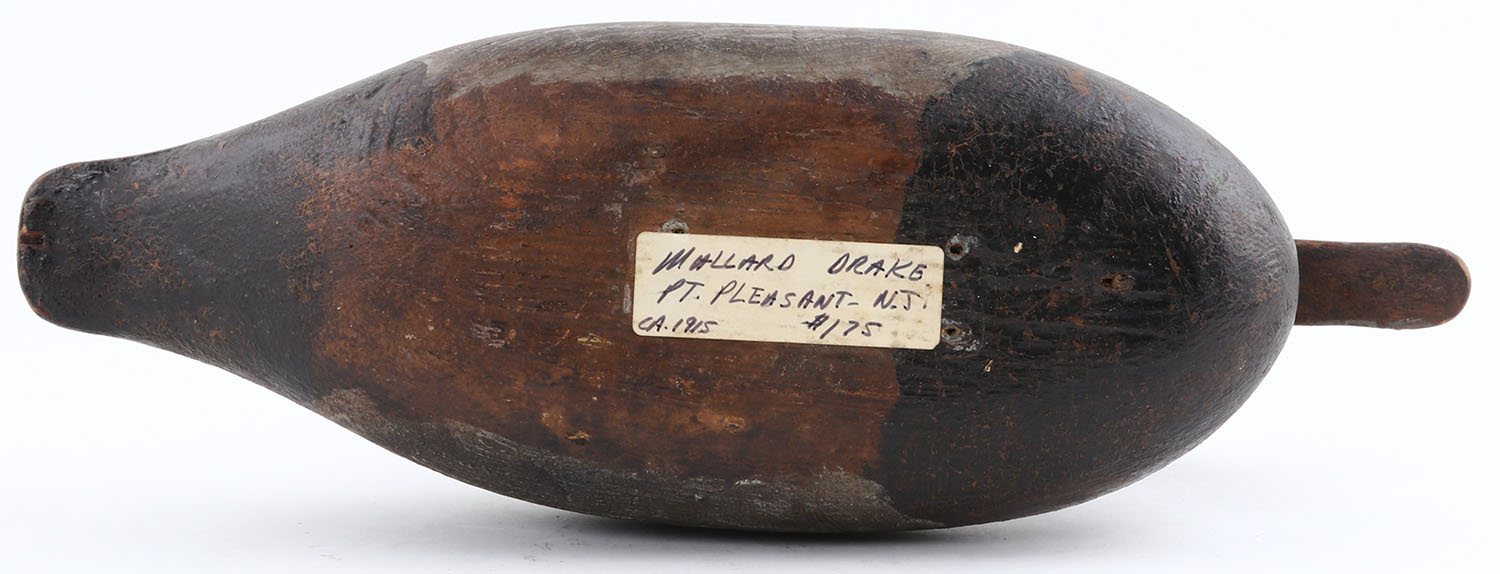 MALLARD DRAKE
PT. PLEASANT- N.J.
CA. 1915 #175